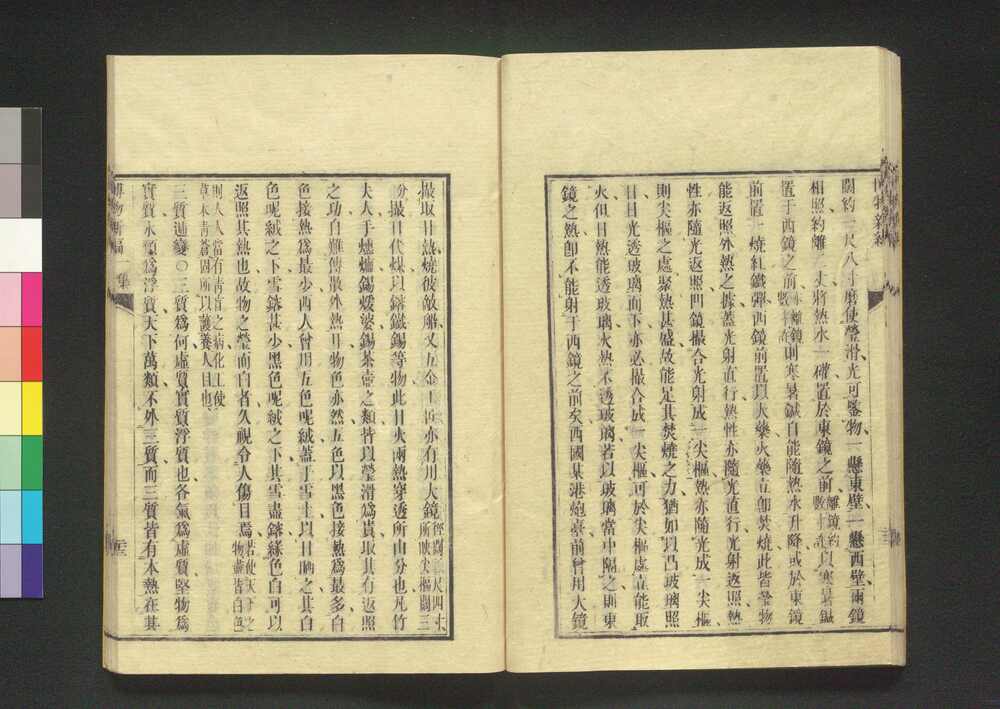 闊約一尺八寸磨使瑩滑光可鑒物一懸東壁一懸西壁兩鏡
相照約離二丈將熱水一確置於東鏡之前離鏡約數十許以寒暑鍼
置于西鏡之前亦離鏡數十許則寒暑鍼自能隨熱水升降或於東鏡
前置一燒紅鐵彈西鏡前置以火藥火藥立卽焚燒此皆瑩物
能返照外熱之據蓋光射直行熱性亦隨光直行光射返照熱
性亦隨光返照凹鏡撮合光射成一尖樞熱亦隨光成一尖樞
則尖樞之處聚熱甚盛故能足其焚燒之力猶如以凸玻璃照
日日光透玻璃而下亦必撮合成一尖樞可於尖樞處立能取
火但日熱能透玻璃火熱不透玻璃若以玻璃當中隔之則東
鏡之熱卽不能射于西鏡之前矣西國某港炮臺前曾用大鏡
撮取日熱燒彼敵船又五金工匠亦有用大鏡徑闊三尺四寸所映尖樞闊三
份撮日代煤以鎔鐵錫等物此日火兩熱穿透所由分也凡竹
夫人手爐燴錫煖婆錫茶壺之類皆以瑩滑爲貴取其有返照
之功自難傳散外熱耳物色亦然五色以黑色接熱爲最多白
色接熱爲最少西人曾用五色呢絨蓋于雪上以日晒之其白
色呢絨之下雪鎔甚少黑色呢絨之下其雪盡鎔緣色白可以
返照其熱也故物之瑩而白者久視令人傷目焉若使天下之物蓋皆白色
則人人當有靑盲之病化工使草木靑蒼因所以護養人目也
三質遞變〇三質爲何虛質實質浮質也各氣爲虛質堅物爲
實質水類爲浮質天下萬類不外三質而三質皆有本熱在其
博物新編
一集